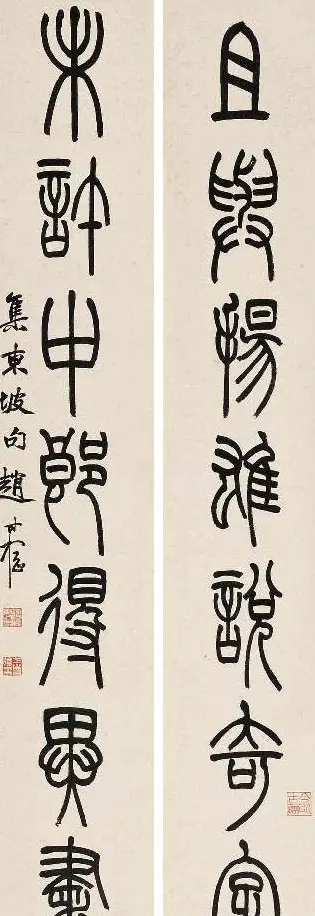 且與揚雄說奇字
未許中郎得異書
集東坡句趙